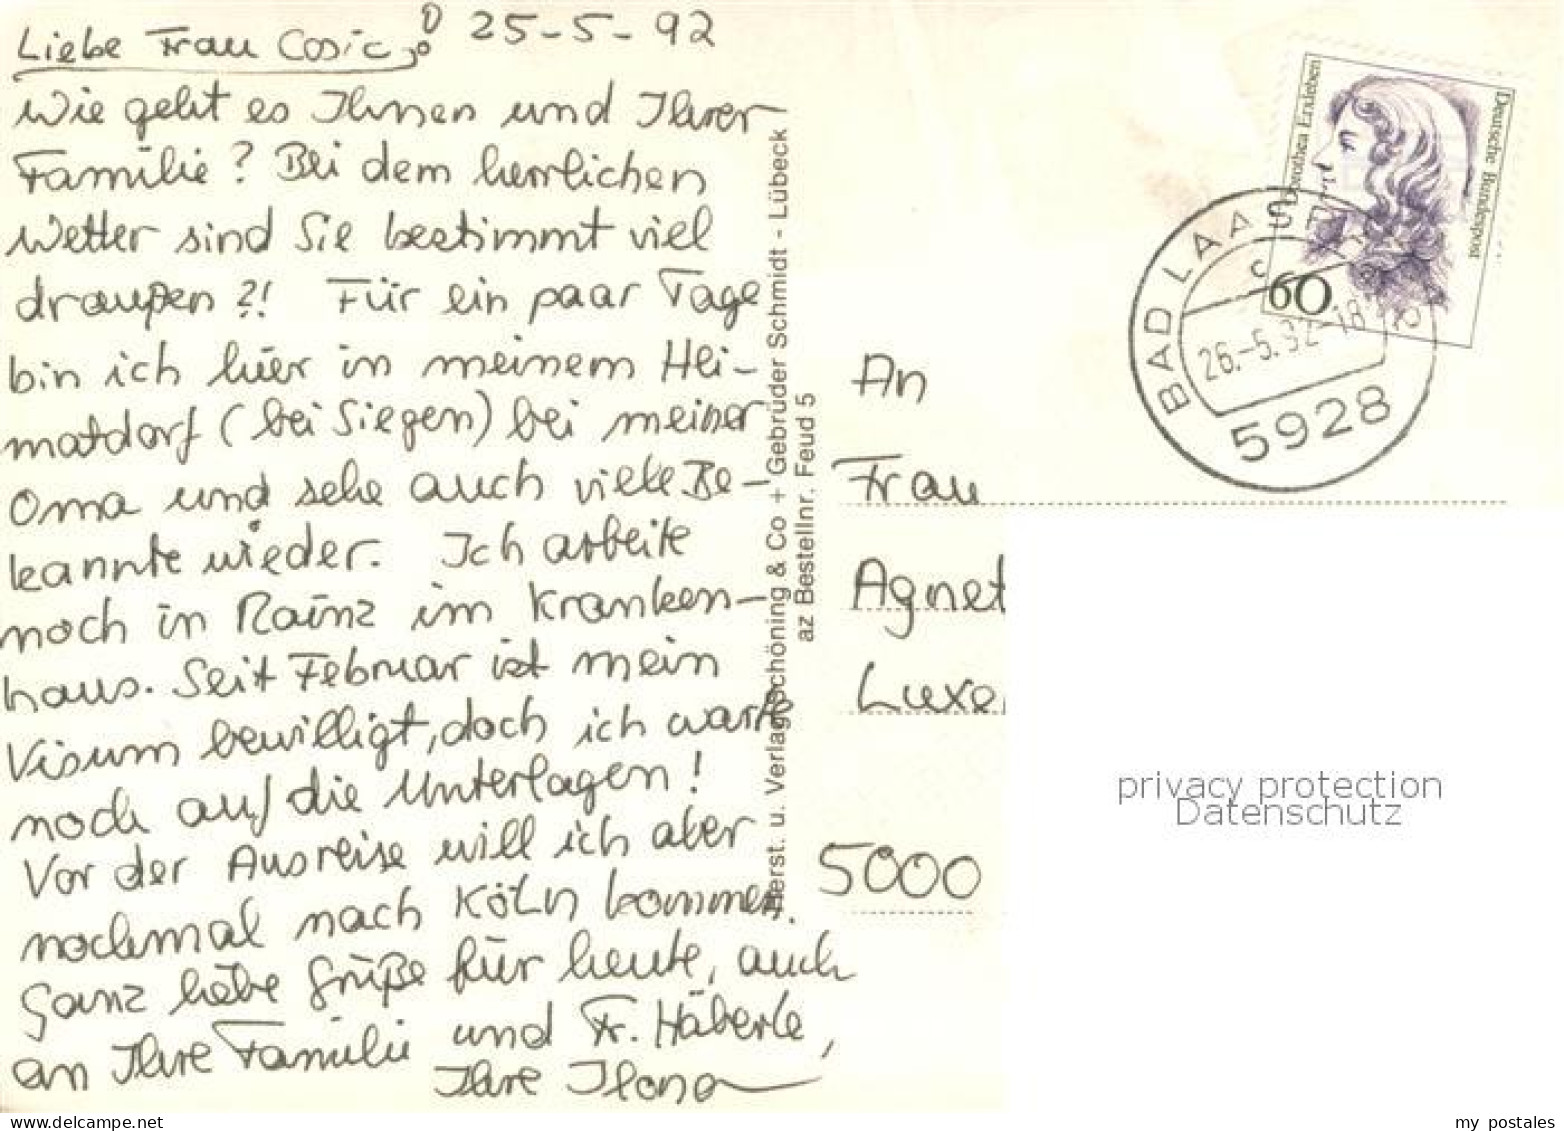 Liebe Frau Cosic! 25-5-92
Wie geht es Ihnen und Ihrer
Familie? Bei dem herrlichen
Wetter sind Sie bestimmt viel
draußen?! Für ein paar Tage
bin ich hier in meinem Hei-
matdorf (bei Siegen) bei meiner
Oma und sehe auch viele Be-
kannte wieder. Ich arbeite
noch in Mainz im Kranken-
haus. Seit Februar ist mein
Visum bewilligt, doch ich warte
noch auf die Unterlagen!
Vor der Ausreise will ich aber
nochmal nach Köln kommen.
Ganz liebe Grüße für heute, auch
an Ihre Familie und Fr. Häberle,
Ihre Ilona
Herst. u. Verlag Schöning & Co + Gebrüder Schmidt - Lübeck
az Bestellnr. Feud 5
Dorothea Erxleben
Deutsche Bundespost
60
BAD LAASPHE
c
26.-5.92-18
5928
An
Frau
Agnet
Luxe
5000
privacy protection
Datenschutz
www.delcampe.net
my_postales